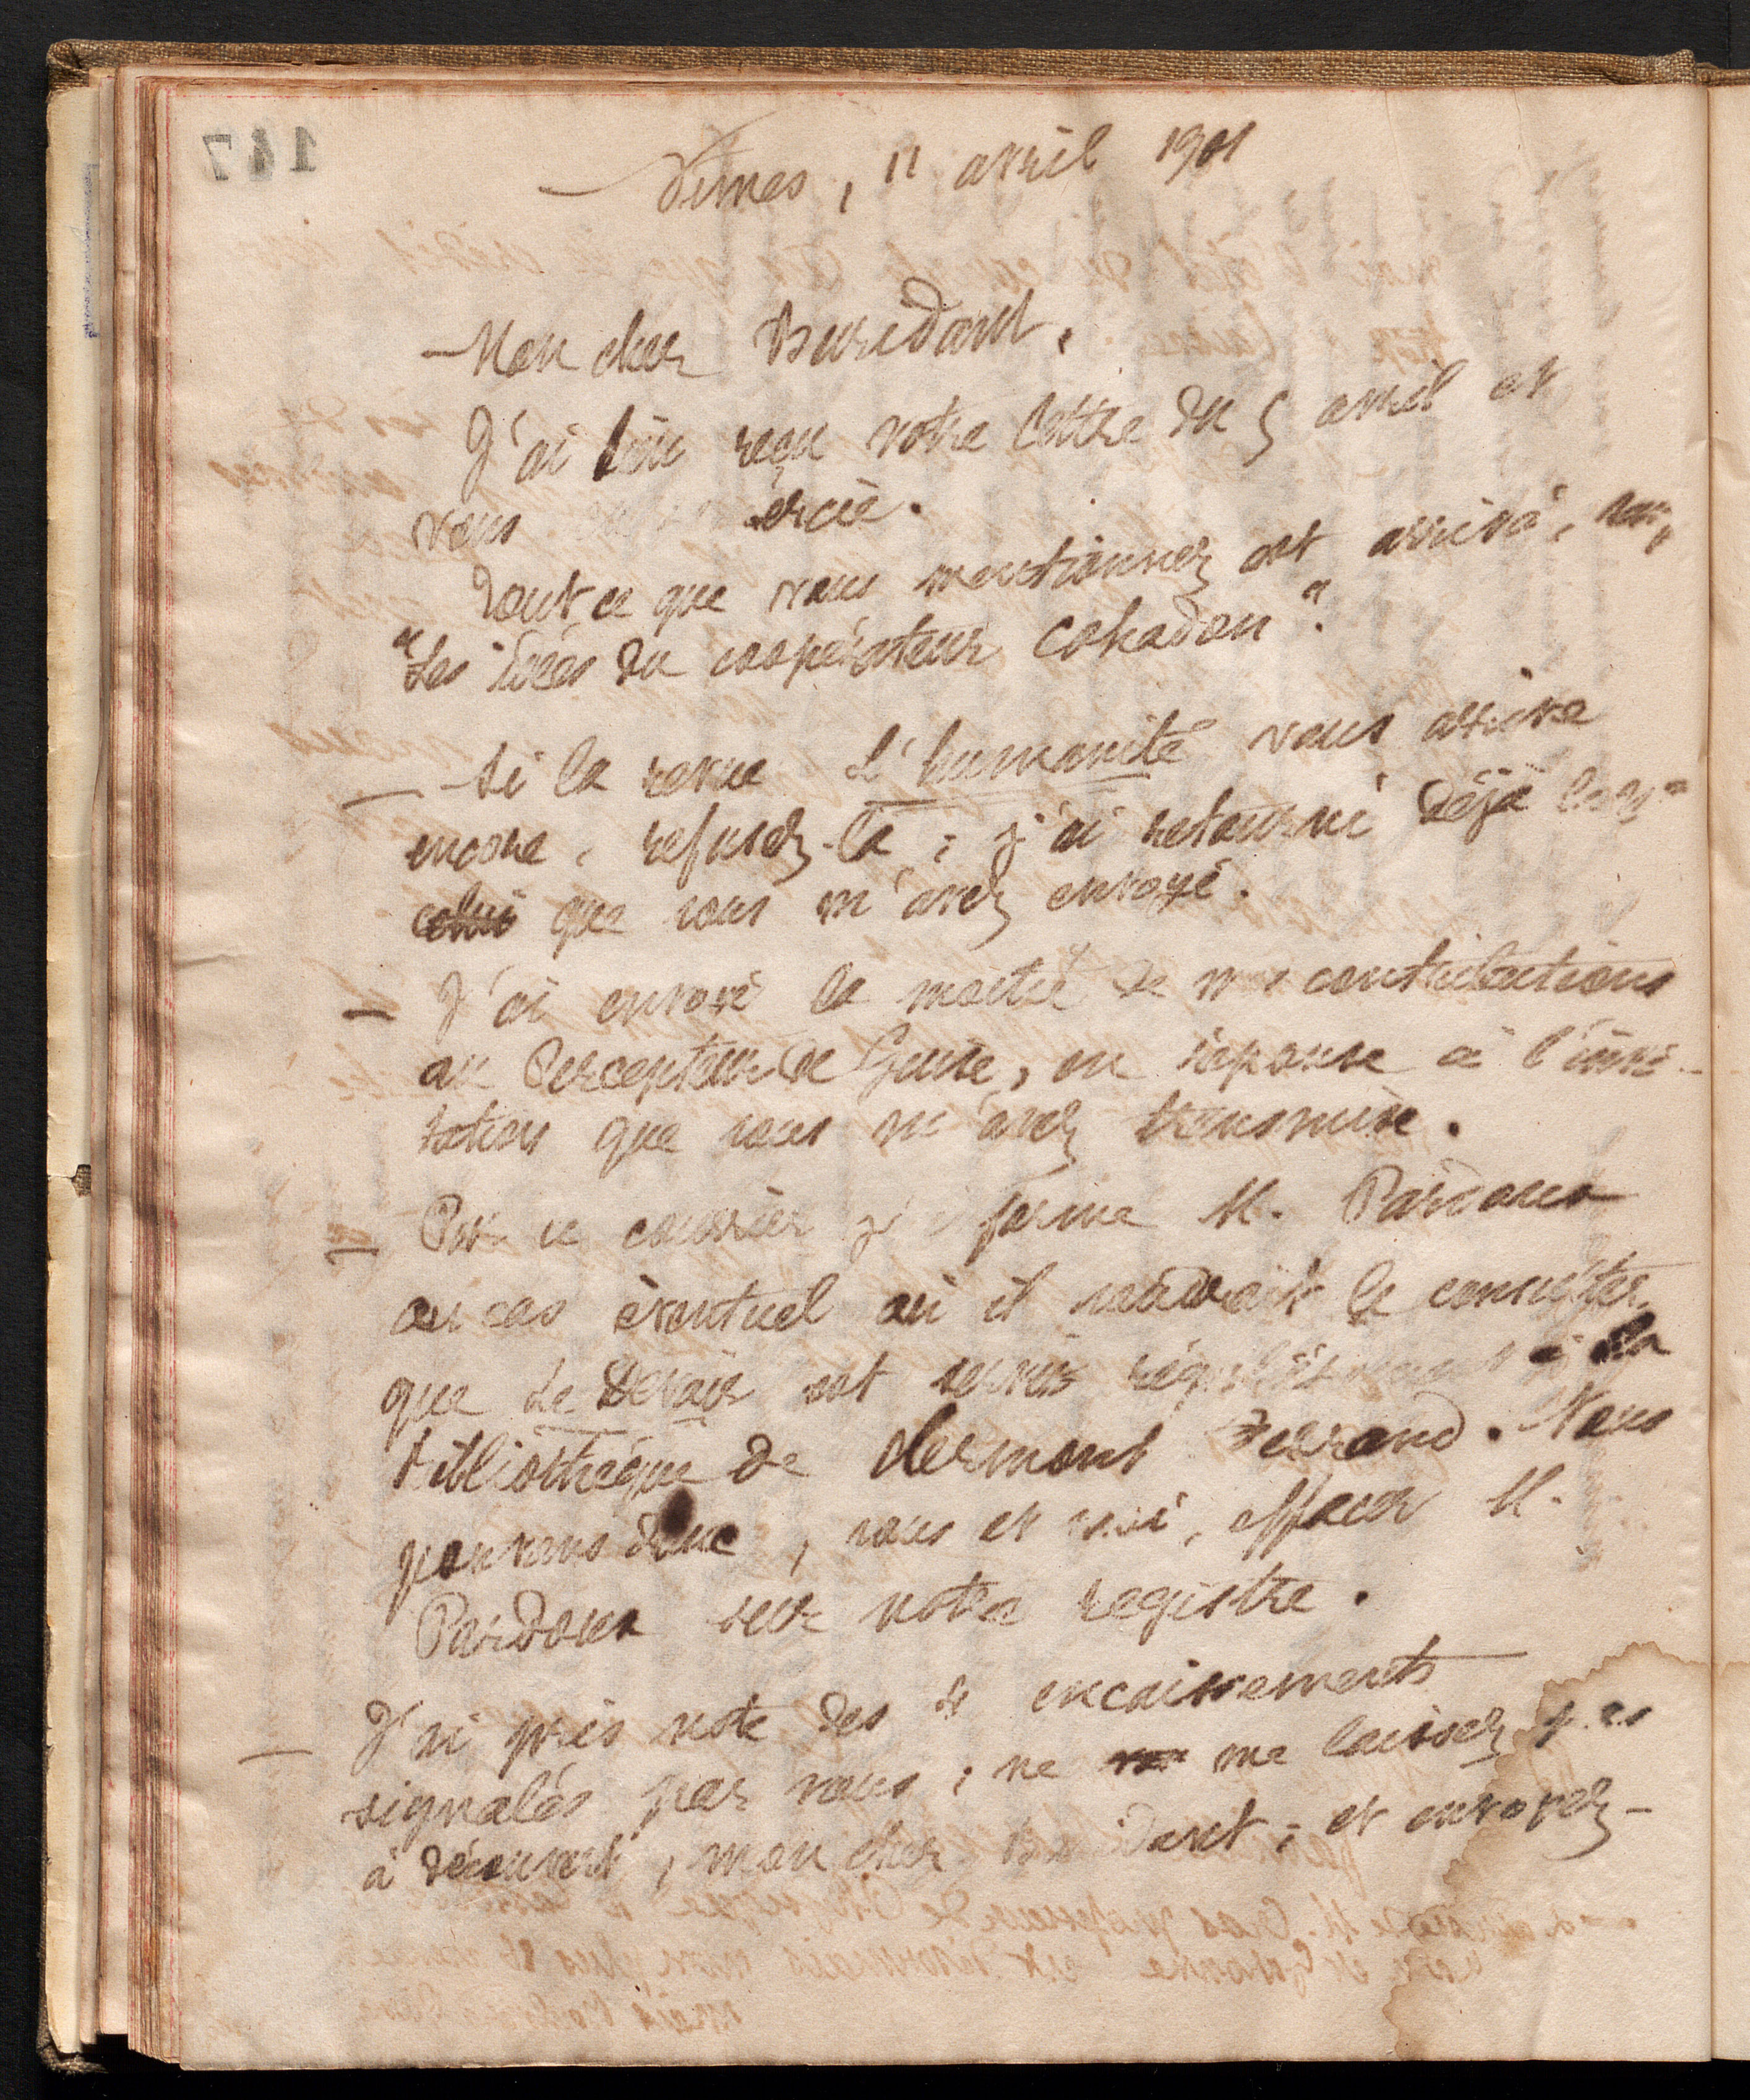 147
Nîmes, 11 avril 1901
Mon cher Buridant,
J'ai bien reçu votre lettre du 5 avril et
vous en remercie.
Tout ce que vous mentionnez est arrivé,
"Les Idées du coopérateur Cohadon".
— Si la revue L'humanité vous arrive
encore, refusez-la ; j'ai retourné déjà
que vous m'avez envoyé.
— J'ai envoyé la moitié de nos contributions
au Percepteur de Guise, en réponse à l'invi-
tation que vous m'avez transmise.
— Par ce courrier j'informe M. Pardoux
au cas éventuel où il voudrait le consulter,
que Le Devoir est servi régulièrement à la
bibliothèque de Clermont Ferrand. Nous
pouvons donc, vous et moi, effacer M.
Pardoux sur notre registre.
— J'ai pris note des 4 encaissements
signalés par vous ; ne me laissez pas
à découvert, mon cher Buridant ; et envoyez-